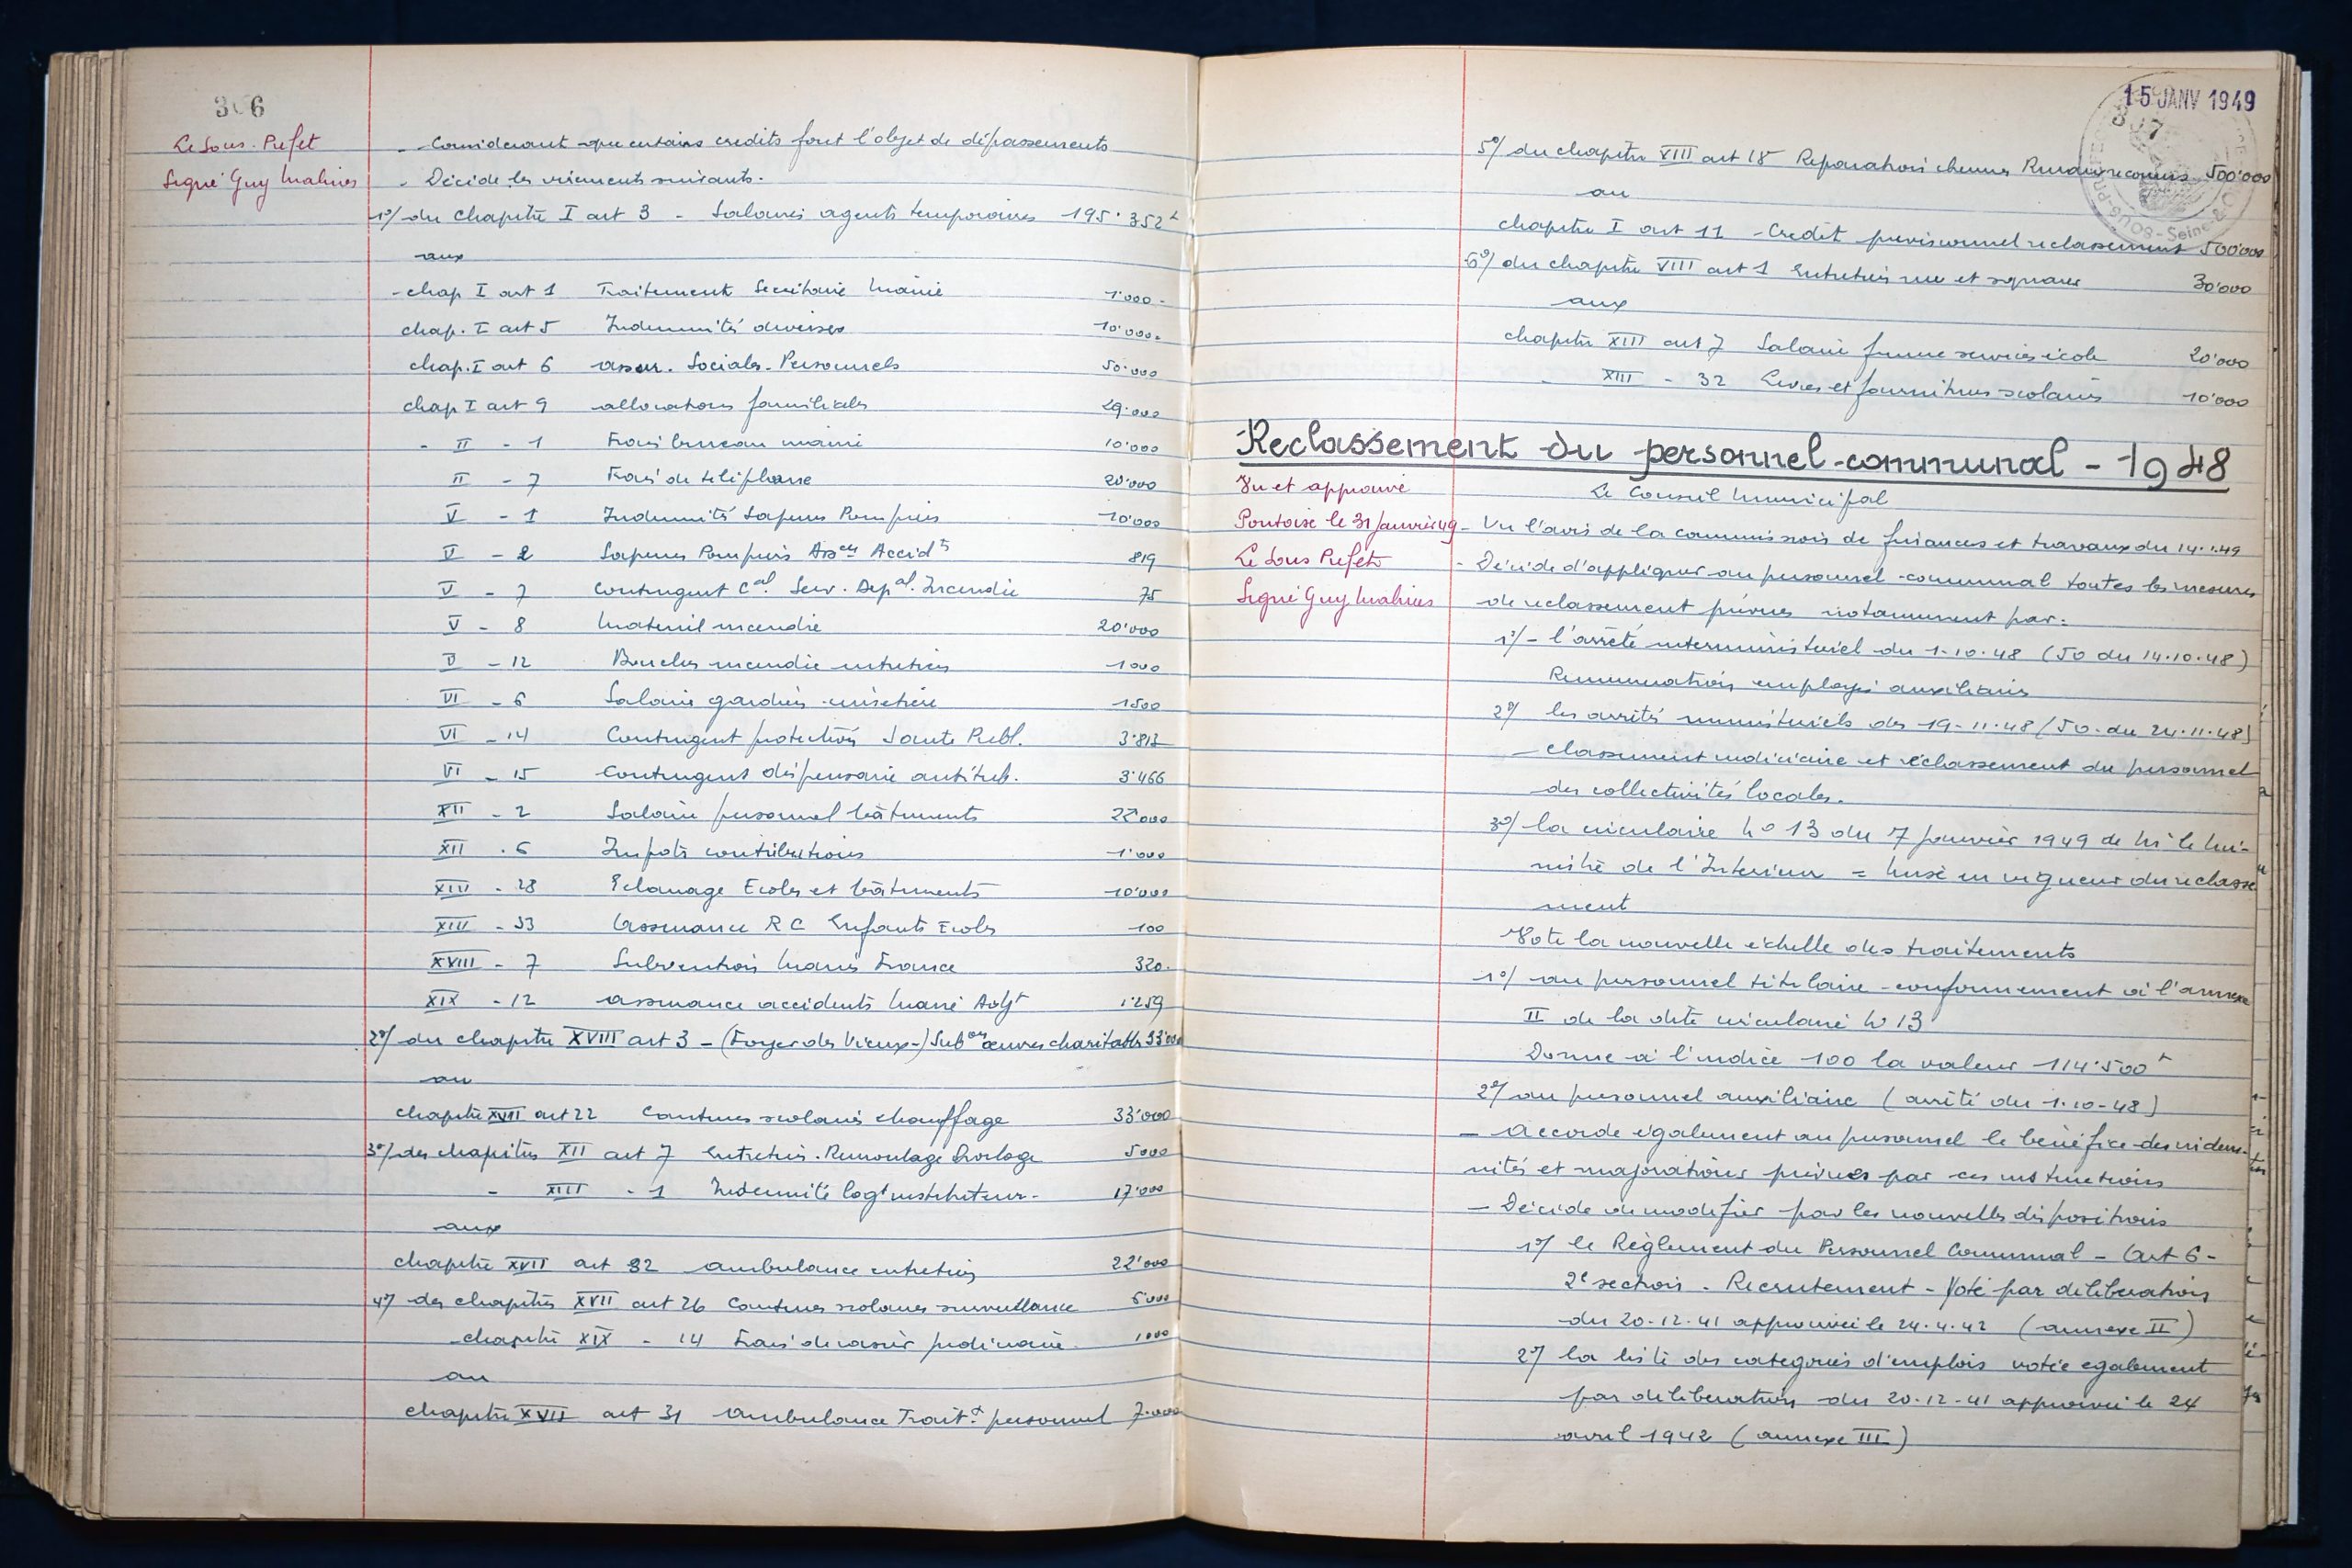 306
Le Sous-Prefet
Signé Guy
- Considerant que certains credits font l'objet de dépassements
- Décide les virements suivants.
1°/ du chapitre I art 3 - Salaires agents temporaires 195'352
aux
- chap I art 1 Traitement Secrétaire Mairie 1'000-
chap. I art 5 Indemnités diverses 10'000-
chap. I art 6 assur. Sociales. Personnels 50'000
chap I art 9 allocations familiales 29'000
- II - 1 Frais bureau mairie 10'000
II - 7 Frais de téléphone 20'000
V - 1 Indemnités Sapeurs Pompiers 10'000
V - 2 Sapeurs Pompiers Assces Accidts 819
V - 7 Contingent Cal. Serv. Depal. Incendie 75
V - 8 Materiel incendie 20'000
V - 12 Bouches incendie entretien 1000
VI - 6 Salaire gardien cimetière 1500
VI - 14 Contingent protection Sante Publ. 3'813
VI - 15 Contingent dispensaire antitub. 3'466
XII - 2 Salaire personnel bâtiments 22'000
XII - 6 Impots contributions 1'000
XIII - 28 Eclairage Ecoles et bâtiments 10'000
XIII - 33 Assurance R C Enfants Ecoles 100
XVIII - 7 Subvention Maires France 320.
XIX - 12 assurance accidents Maire Adjt 1'259
2°/ du chapitre XVIII art 3 - (Foyer des Vieux-) Subon œuvres charitables 33'000
au
chapitre XVII art 22 Cantines scolaires chauffage 33'000
3°/ des chapitres XII art 7 Entretien. Remontage horloge 5000
- XIII - 1 Indemnité logt instituteur - 17'000
aux
chapitre XVII art 32 ambulance entretien 22'000
4°/ des chapitres XVII art 26 Cantines scolaires surveillance 6'000
chapitre XIX - 14 Frais de casier judiciaire. 1000
au
chapitre XVII art 31 ambulance Trait.t personnel 7.000
15 JANV 1949
307
5°/ du chapitre VIII art 18 Reparation chemins Ruraux reconnus 500'000
au
chapitre I art 11 - Credit previsionnel reclassement 500'000
6°/ du chapitre VIII art 1 Entretien rue et squares 30'000
aux
chapitre XIII art 7 Salaire femme services école 20'000
- XIII - 32 Livres et fournitures scolaires 10'000
Reclassement du personnel communal - 1948
Vu et approuvé
Pontoise le 31 Janvier 49
Le Sous Prefet
Signé Guy
Le Conseil Municipal
- Vu l'avis de la commission de finances et travaux du 14.1.49
- Décide d'appliquer au personnel communal toutes les mesures
de reclassement prévues notamment par:
1°/- l'arrêté interministériel du 1-10-48 (JO du 14.10.48)
Remuneration employés auxiliaires
2°/ les arrêtés ministeriels des 19-11-48 (JO. du 24.11.48)
- classement indiciaire et reclassement du personnel
des collectivités locales.
3°/ la circulaire No 13 du 7 janvier 1949 de Mr le Mi-
nistre de l'Interieur = Mise en vigueur du reclasse
ment
Vote la nouvelle échelle des traitements
1°/ au personnel titulaire - conformement à l'annexe
II de la dite circulaire No 13
Donne à l'indice 100 la valeur 114'500
2°/ au personnel auxiliaire (arrêté du 1-10-48)
- Accorde également au personnel le bénéfice des indem-
nités et majorations prévues par ces instructions
- Décide de modifier par les nouvelles dispositions
1°/ le Règlement du Personnel Communal - Art 6 -
2e section - Recrutement - Voté par deliberation
du 20-12-41 approuvée le 24-4-42 (annexe II)
2°/ la liste des categories d'emplois votée egalement
par deliberation du 20-12-41 approuvée le 24
avril 1942 (annexe III)